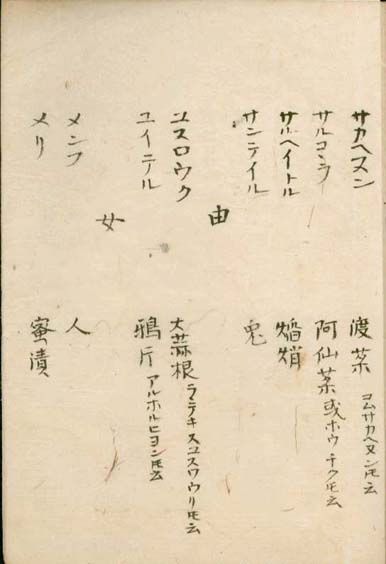 サカヘヌン 渡茶 コムサカヘヌントモ云
サルコヽラ 阿仙茶或ホウチクトモ云
サルヘイトル 焰焇
サンテイル 兎
由
ユスロウク 大蒜根ラテキスユスワウリトモ云
ユイテル 鴉片アルホルヒヨントモ云
女
メンフ 人
メリ 蜜漬